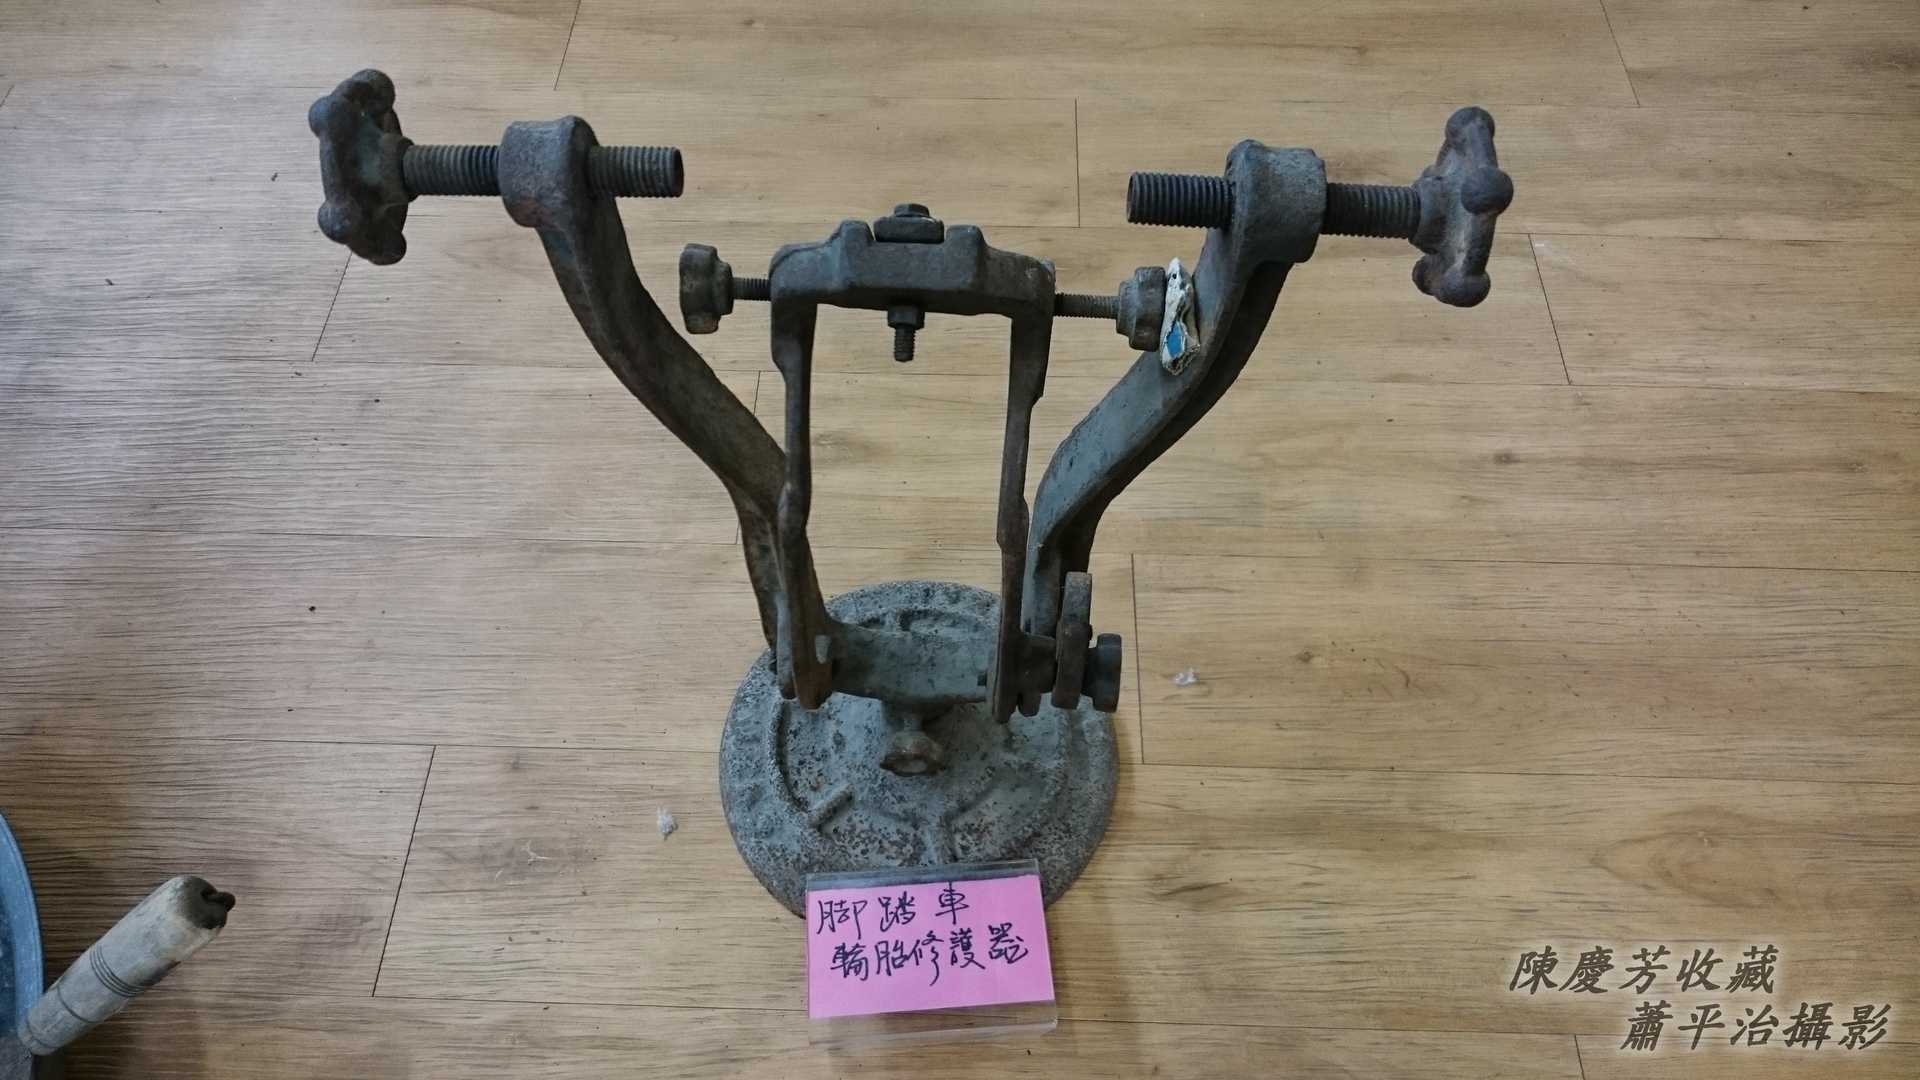 腳踏車
輪胎修護器
陳慶芳收藏
蕭平治攝影